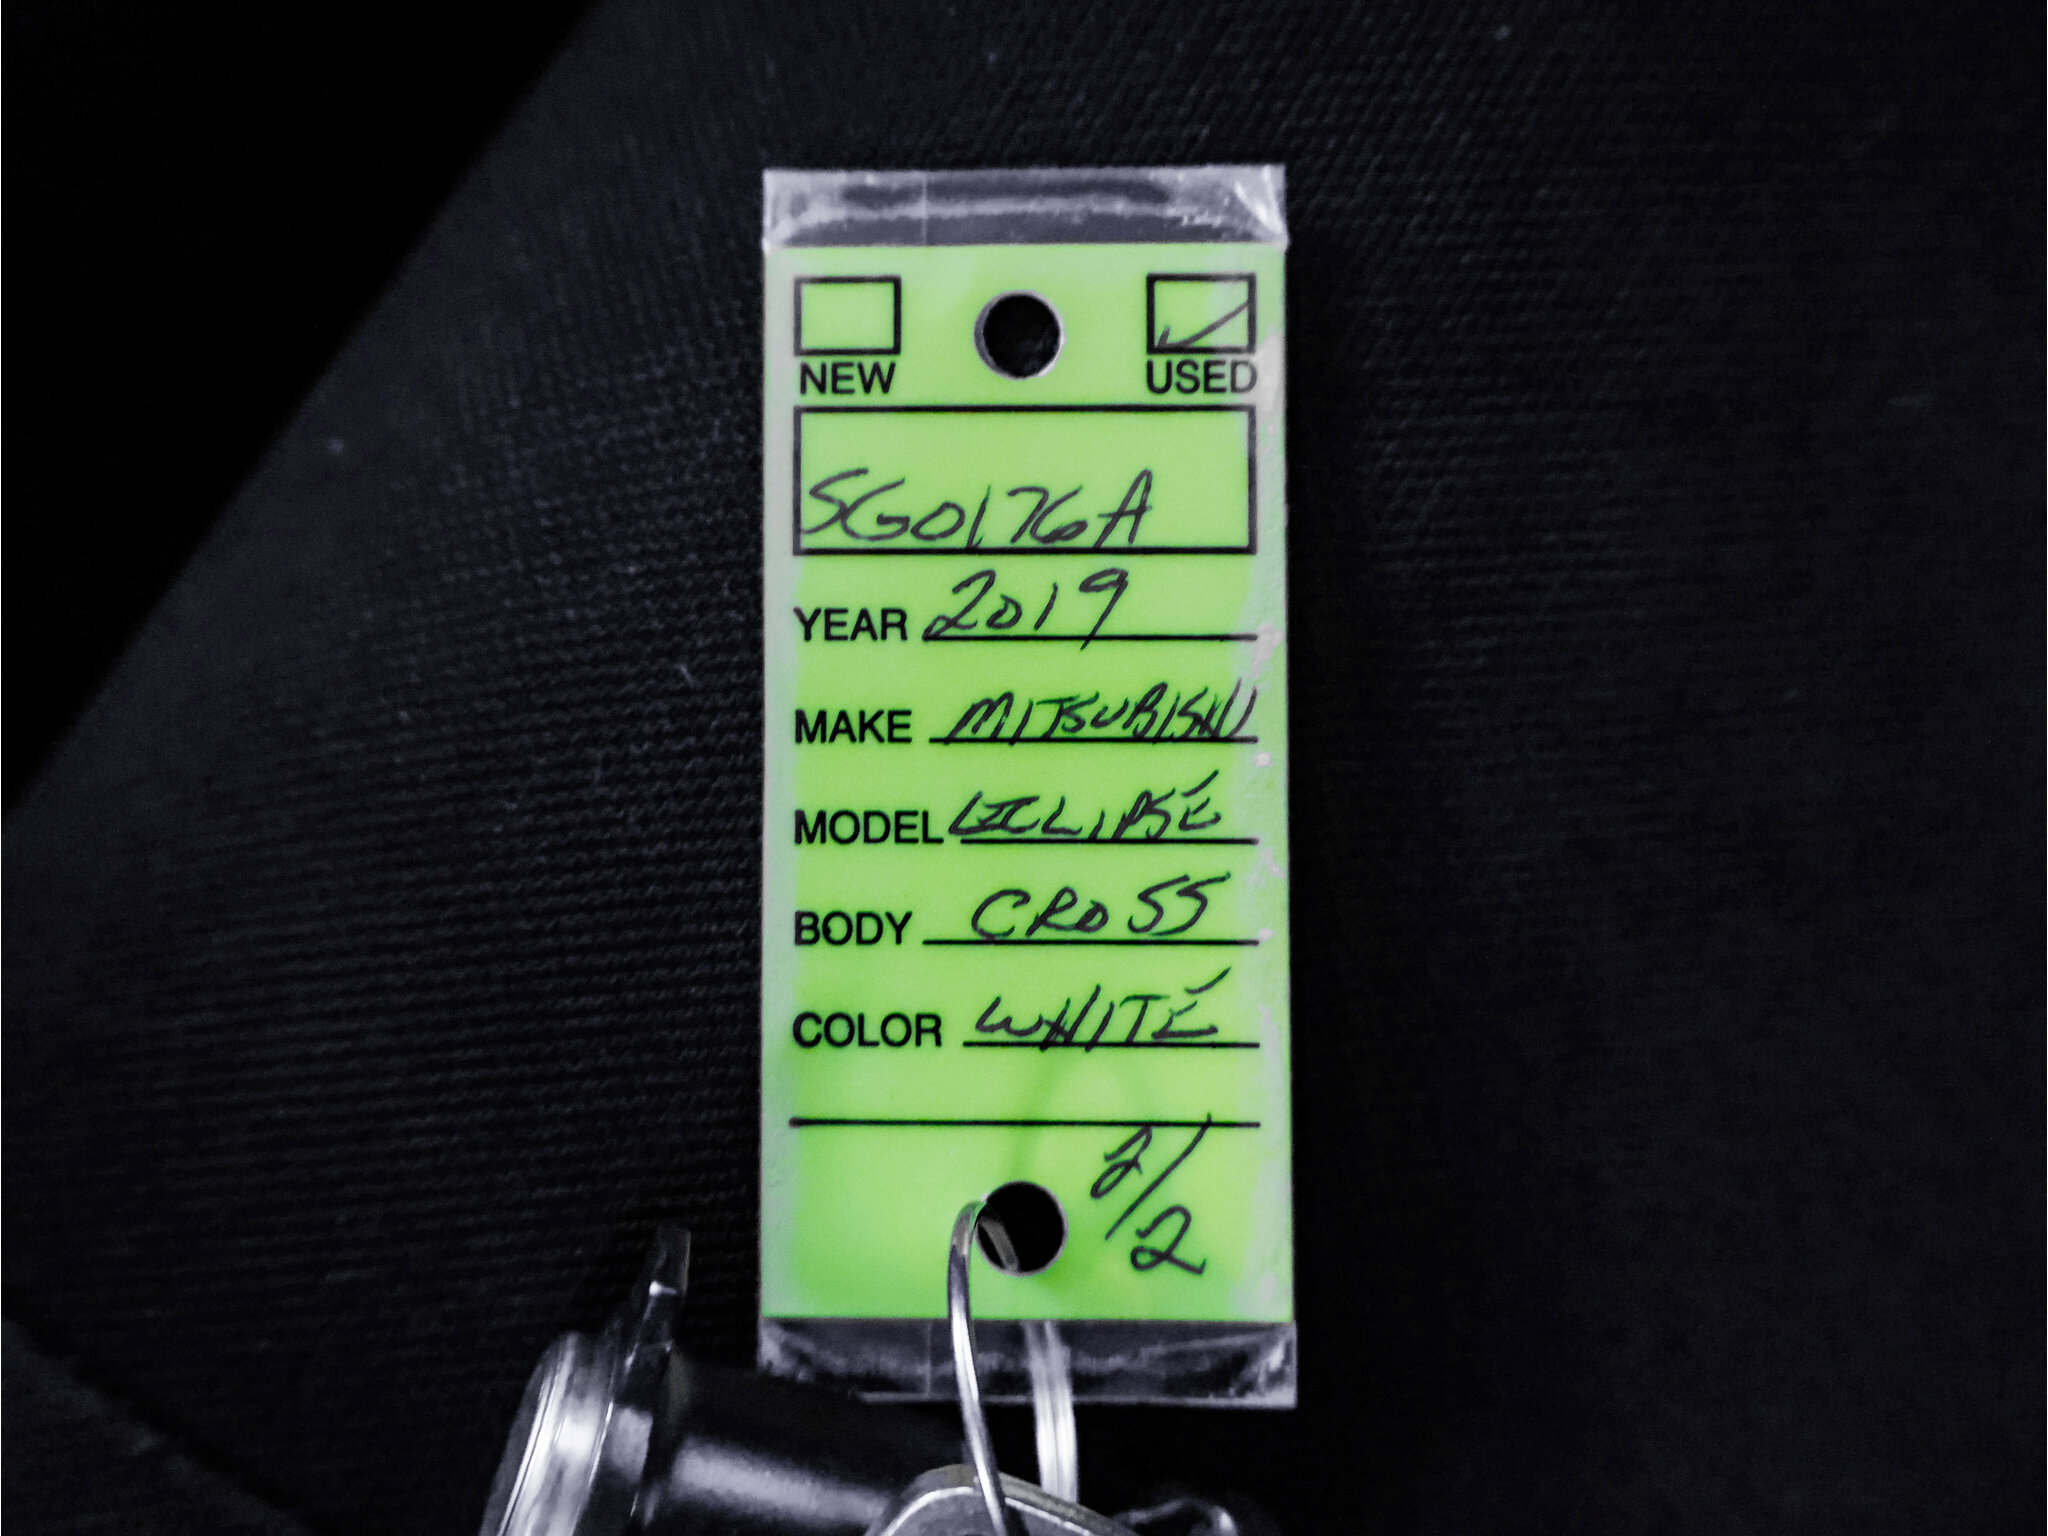 NEW USED
SG0176A
YEAR 2019
MAKE MITSUBISHI
MODEL ECLIPSE
BODY CROSS
COLOR WHITE
2/2